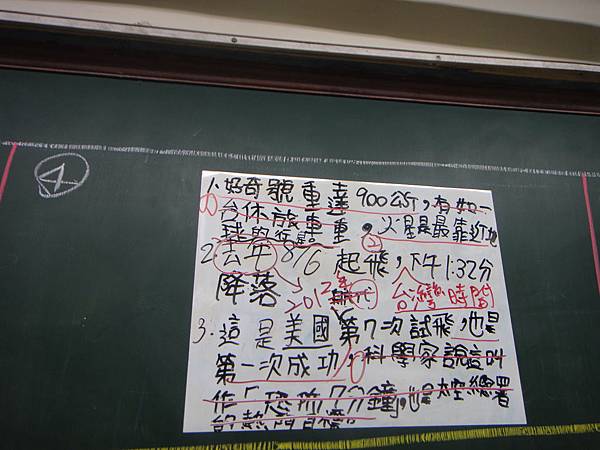 ④
1.好奇號重達900公斤,有如一
①台休旅車重,火星是最靠近地
球的行星 ②
2.去年8/6起飛,下午1:32分
降落 2012年 台灣時間
3.這是美國第7次試飛,也是
第一次成功,科學家說這叫
作「恐怖7分鐘,也是太空總署
的熱門目標。